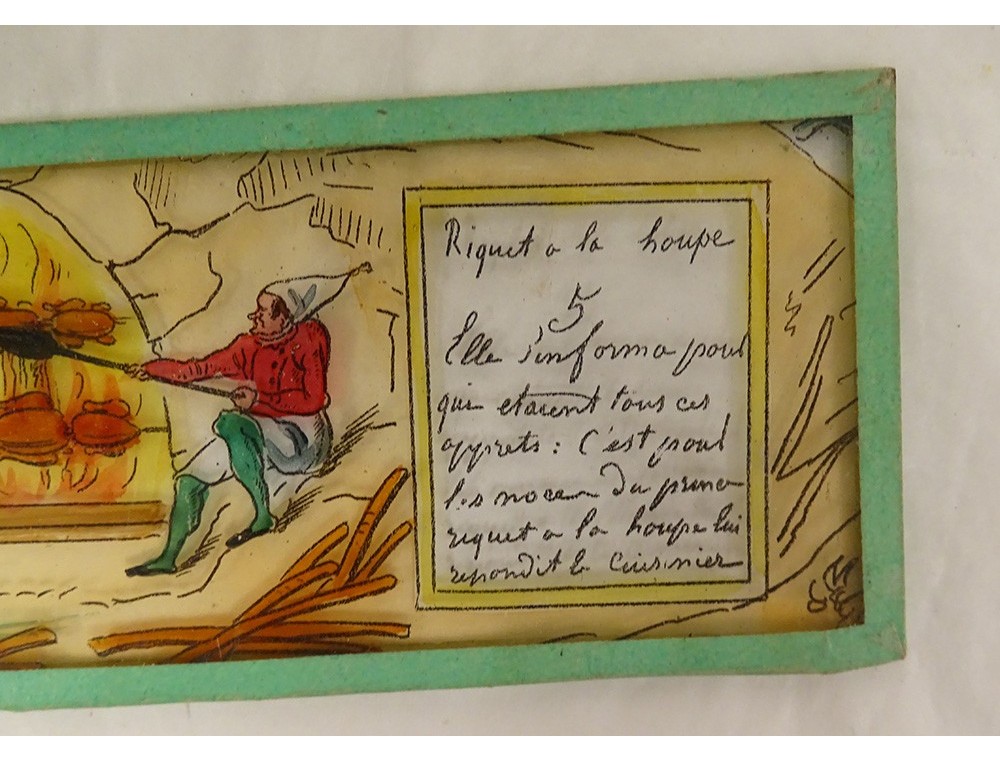 Riquet a la houpe
5
Elle s'informa pour
qui etaient tous ces
apprets : C'est pour
les noces du prince
riquet a la houpe lui
repondit le cuisinier